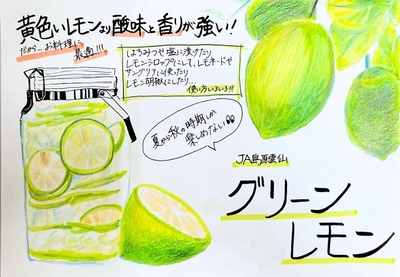 黄色いレモンより酸味と香りが強い！
だから…お料理に
最適!!!
はちみつや塩に漬けたり
レモンシロップにして、レモネードや
サングリアに使ったり
レモン胡椒にしたり…
使い方いろいろ!!
夏から秋の時期しか
楽しめない
JA島原雲仙
グリーン
レモン